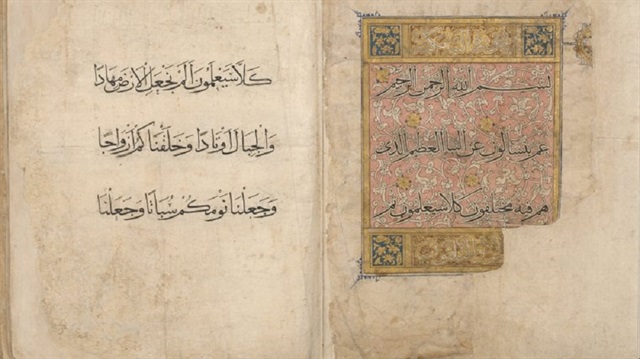 بسم الله الرحمن الرحيم
عم يتسالون عن النبا العظيم الذي
هم فيه مختلفون كلا سيعلمون ثم
كلا سيعلمون الم نجعل الارض مهادا
والجبال اوتادا وخلقناكم ازواجا
وجعلنا نومكم سباتا وجعلنا